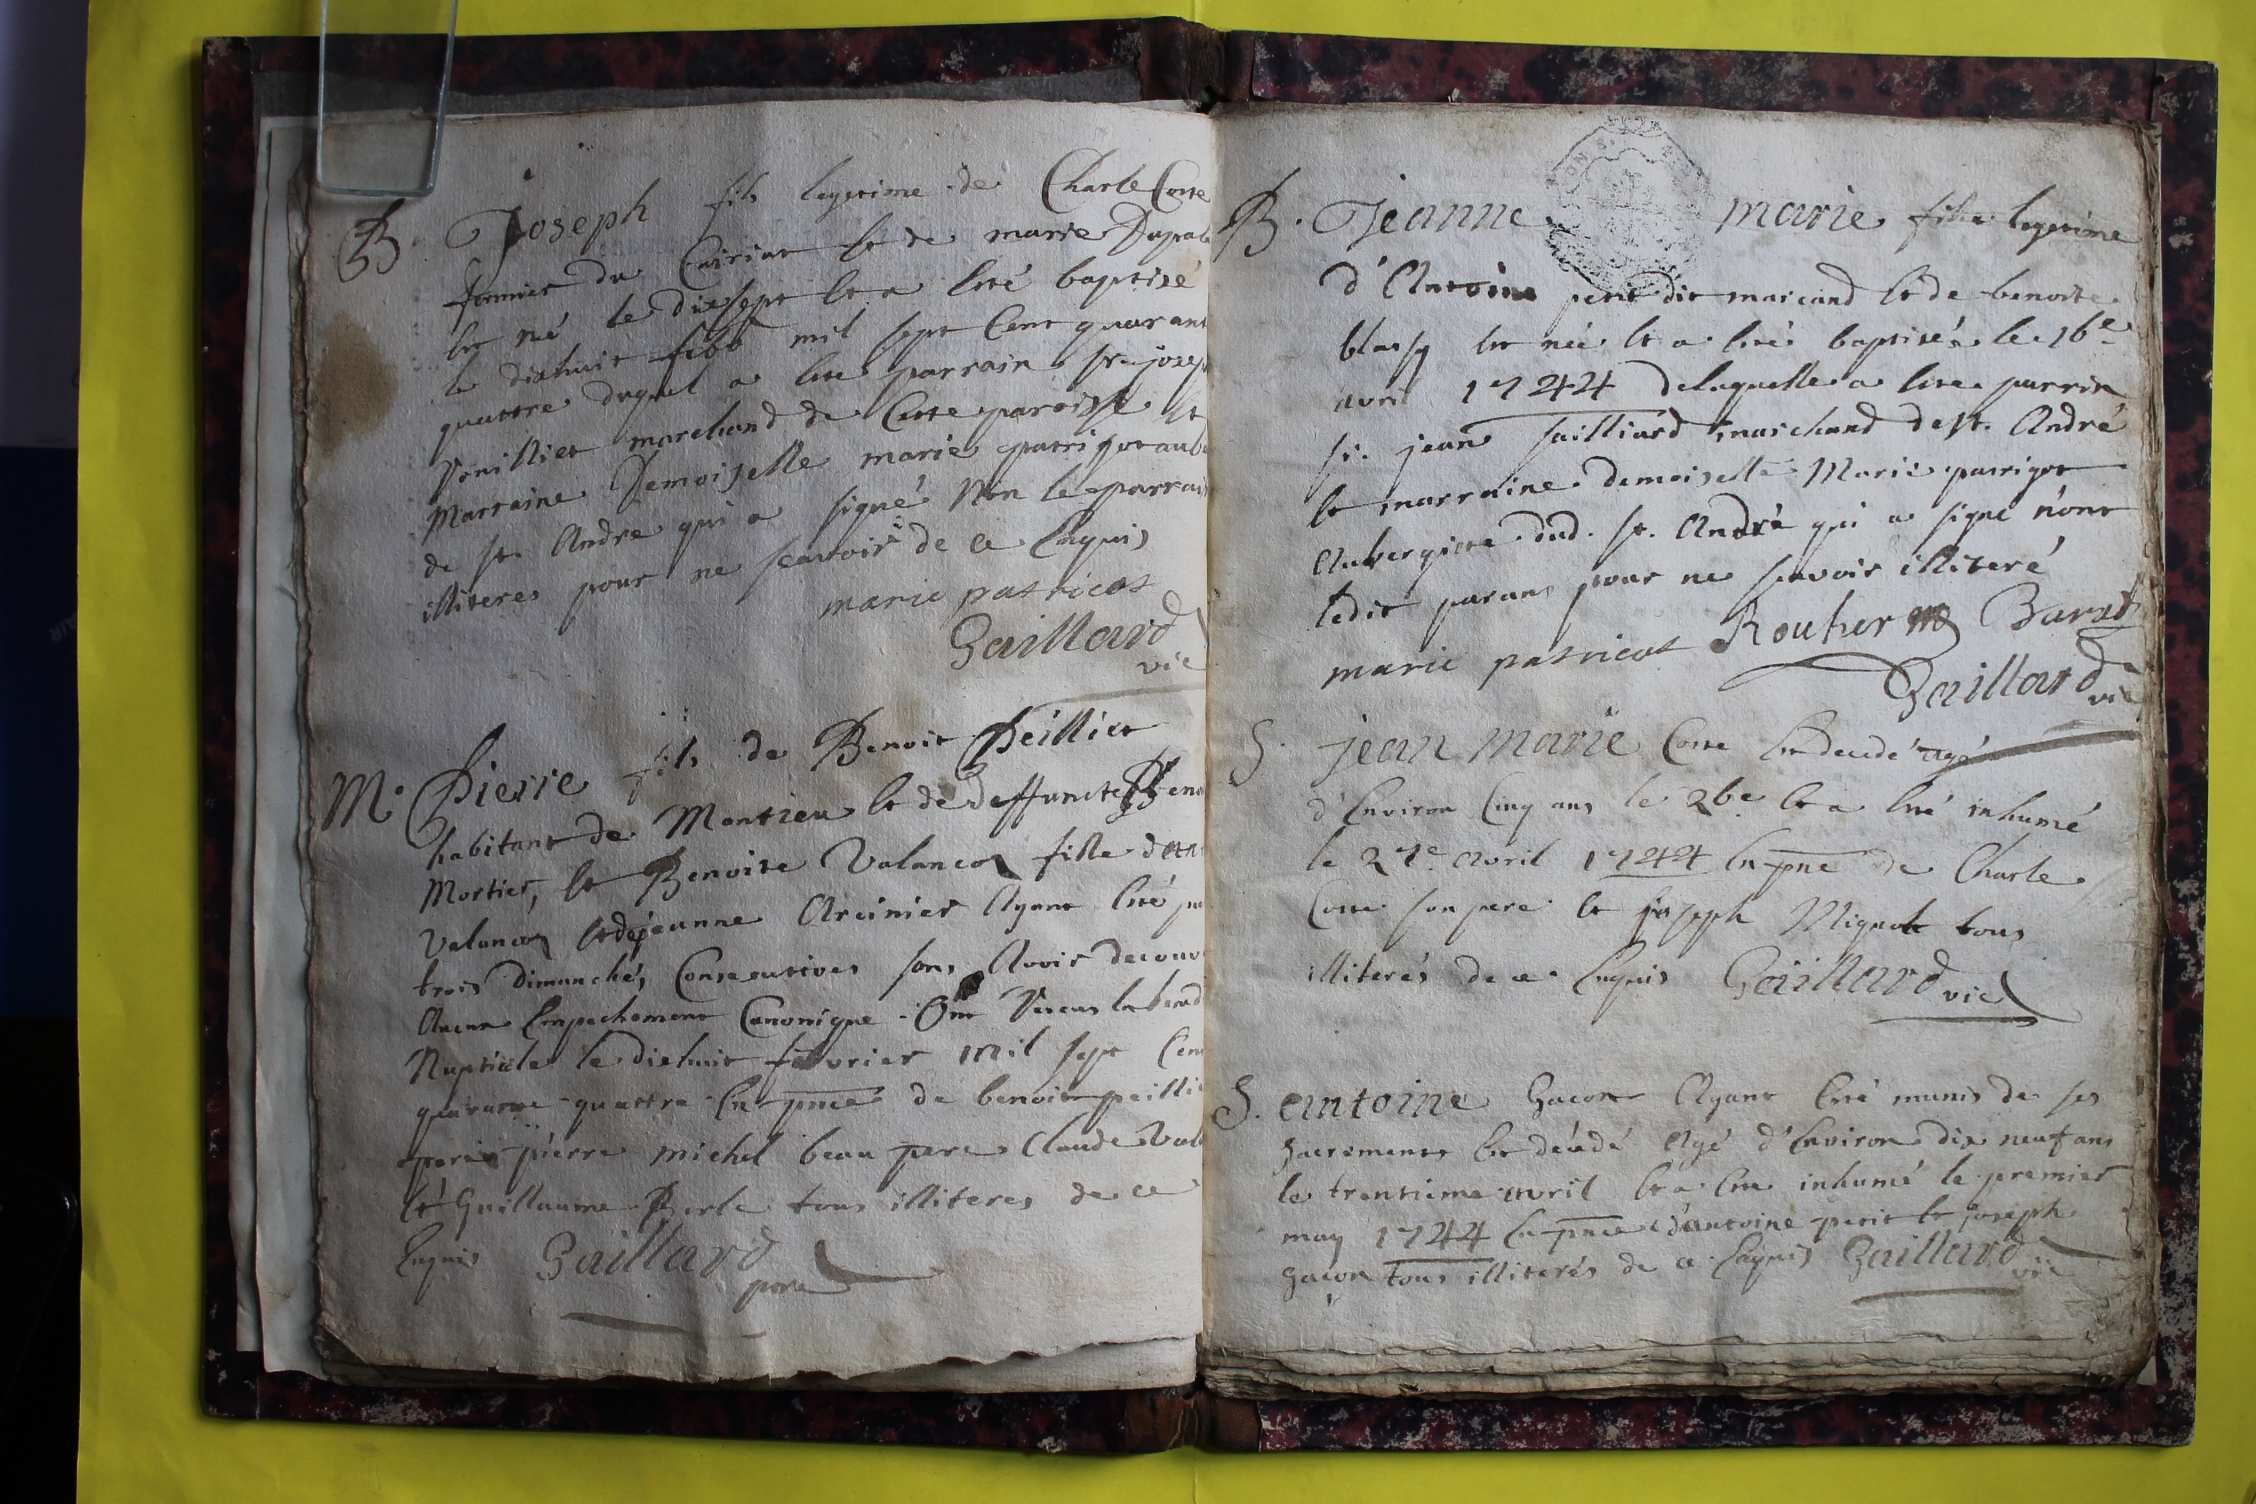 B. Joseph fils legetime de Charle Cotte
fermier du Cuiriat et de marie
est né le dixsept et a eté baptisé
le dixhuit febb mil sept Cent quarant
quattre duquel a ete parrain sr josep
marchand de Cette paroisse et
Marraine Demoiselle marie patrigot aub
de st. André qui a signé Non le parrain
illiteres pour ne scavoir de ce Enquis
marie patricot
Gaillard
vic
M. Pierre fils de Benoit Peilliet
habitant de Montieu et de deffuncte Beno
Mortier, et Benoite Valancon fille d'ant
Valancon et de jeanne Arcinier Ayant été pu
trois dimanches Consecutives sans Avoir decouv
Aucun Empechement Canonique Ont Receus la bened
Nuptiale le dixhuit fevrier mil sept Cent
quarante quattre En pnce de benoit peillie
pere pierre michel beau pere Claude Val
et Guillaume tous illiteres de ce
Enquis Gaillard
B. Jeanne marie fille legetime
d'Antoine petit dit maicand et de benoite
est née et a eté baptisée le 16e
avril 1744 delaquelle a ete parrin
sr. jean marchand de st. André
et marraine demoiselle Marie patrigot
Aubergiste dud. st. André qui a signé n'ont
ledit parans pour ne scavoir illiteré
marie patricot Gaillard vic
S. jean marie Cotte Est decedé agé
d'Environ Cinq ans le 26e Et a été inhumé
le 27e avril 1744 En pnce de Charle
Cotte son pere et joseph Mignot tous
illiterés de ce Enquis Gaillard vic
S. antoine Gacon Ayant Eté munis de ses
Sacrements Est décédé Agé d'Environ dix neuf ans
le trentieme avril Et a Ete inhumé le premier
may 1744 En pnce d'antoine petit et joseph
gacon tous illiterés de ce Enquis Gaillard
vic